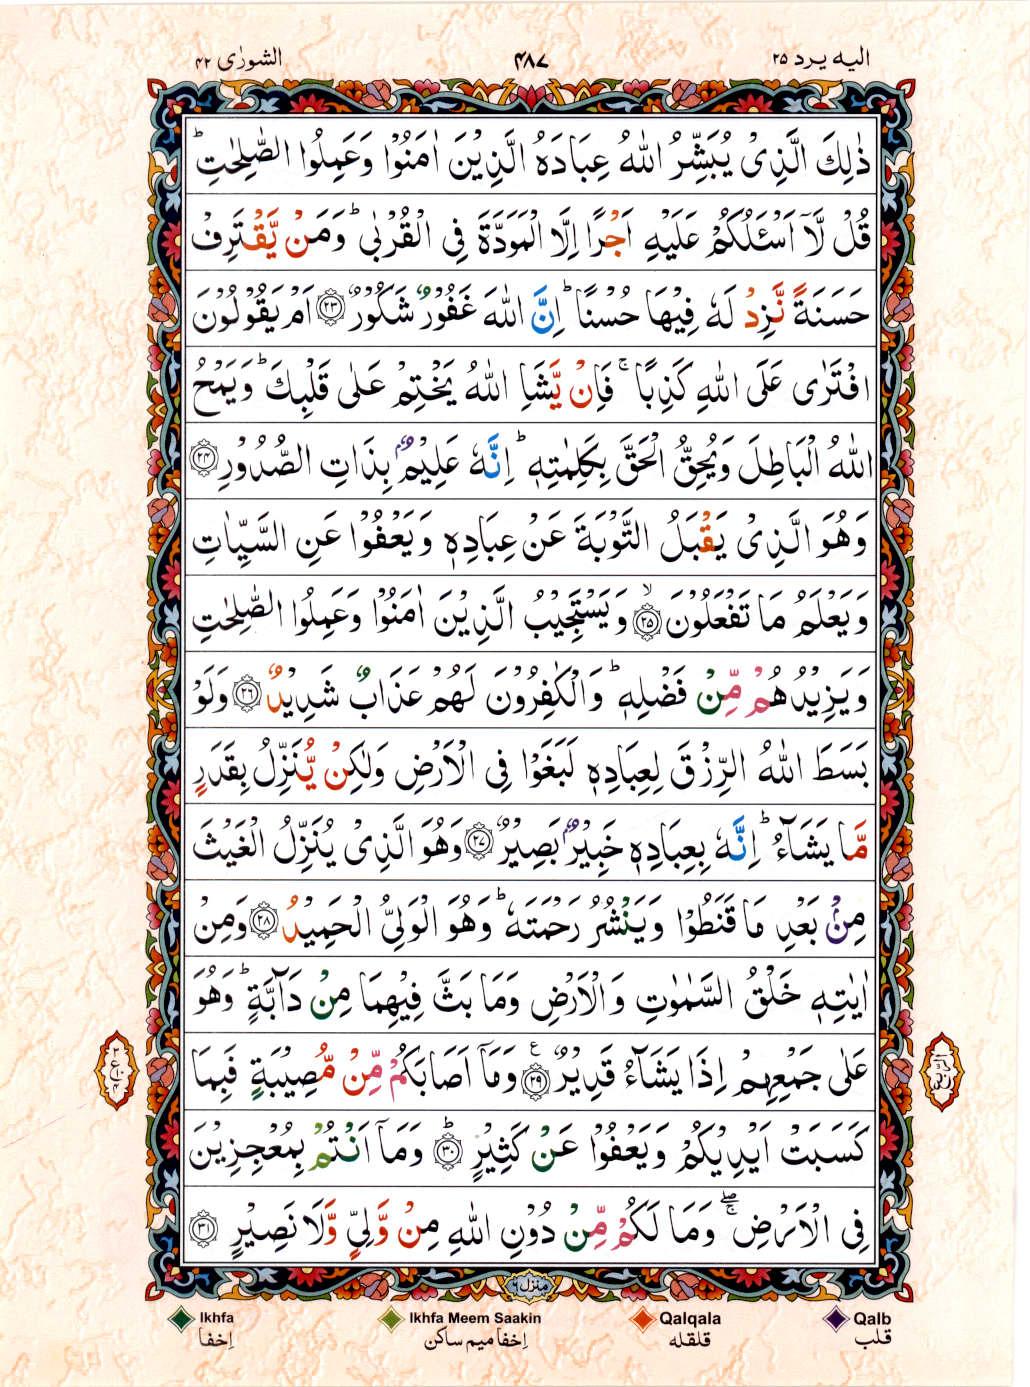 الیه یرد ۲۵
۴۸۷
الشورٰی ۴۲
ذٰلِكَ الَّذِیْ یُبَشِّرُ اللّٰهُ عِبَادَهُ الَّذِیْنَ اٰمَنُوْا وَعَمِلُوا الصّٰلِحٰتِ ؕ
قُلْ لَّاۤ اَسْـَٔلُكُمْ عَلَیْهِ اَجْرًا اِلَّا الْمَوَدَّةَ فِی الْقُرْبٰی ؕ وَمَنْ یَّقْتَرِفْ
حَسَنَةً نَّزِدْ لَهٗ فِیْهَا حُسْنًا ؕ اِنَّ اللّٰهَ غَفُوْرٌ شَكُوْرٌ ۝۲۳ اَمْ یَقُوْلُوْنَ
افْتَرٰی عَلَی اللّٰهِ كَذِبًا ۚ فَاِنْ یَّشَاِ اللّٰهُ یَخْتِمْ عَلٰی قَلْبِكَ ؕ وَیَمْحُ
اللّٰهُ الْبَاطِلَ وَیُحِقُّ الْحَقَّ بِكَلِمٰتِهٖ ؕ اِنَّهٗ عَلِیْمٌۢ بِذَاتِ الصُّدُوْرِ ۝۲۴
وَهُوَ الَّذِیْ یَقْبَلُ التَّوْبَةَ عَنْ عِبَادِهٖ وَیَعْفُوْا عَنِ السَّیِّاٰتِ
وَیَعْلَمُ مَا تَفْعَلُوْنَ ۝۲۵ ۙ وَیَسْتَجِیْبُ الَّذِیْنَ اٰمَنُوْا وَعَمِلُوا الصّٰلِحٰتِ
وَیَزِیْدُهُمْ مِّنْ فَضْلِهٖ ؕ وَالْكٰفِرُوْنَ لَهُمْ عَذَابٌ شَدِیْدٌ ۝۲۶ وَلَوْ
بَسَطَ اللّٰهُ الرِّزْقَ لِعِبَادِهٖ لَبَغَوْا فِی الْاَرْضِ وَلٰكِنْ یُّنَزِّلُ بِقَدَرٍ
مَّا یَشَآءُ ؕ اِنَّهٗ بِعِبَادِهٖ خَبِیْرٌۢ بَصِیْرٌ ۝۲۷ وَهُوَ الَّذِیْ یُنَزِّلُ الْغَیْثَ
مِنْۢ بَعْدِ مَا قَنَطُوْا وَیَنْشُرُ رَحْمَتَهٗ ؕ وَهُوَ الْوَلِیُّ الْحَمِیْدُ ۝۲۸ وَمِنْ
اٰیٰتِهٖ خَلْقُ السَّمٰوٰتِ وَالْاَرْضِ وَمَا بَثَّ فِیْهِمَا مِنْ دَآبَّةٍ ؕ وَهُوَ
عَلٰی جَمْعِهِمْ اِذَا یَشَآءُ قَدِیْرٌ ۝۲۹ ع وَمَاۤ اَصَابَكُمْ مِّنْ مُّصِیْبَةٍ فَبِمَا
كَسَبَتْ اَیْدِیْكُمْ وَیَعْفُوْا عَنْ كَثِیْرٍ ۝۳۰ ؕ وَمَاۤ اَنْتُمْ بِمُعْجِزِیْنَ
فِی الْاَرْضِ ۖۚ وَمَا لَكُمْ مِّنْ دُوْنِ اللّٰهِ مِنْ وَّلِیٍّ وَّلَا نَصِیْرٍ ۝۳۱
منزل ۶
Ikhfa
Ikhfa Meem Saakin
Qalqala
Qalb
اِخفا
اِخفا میم ساکن
قلقله
قلب